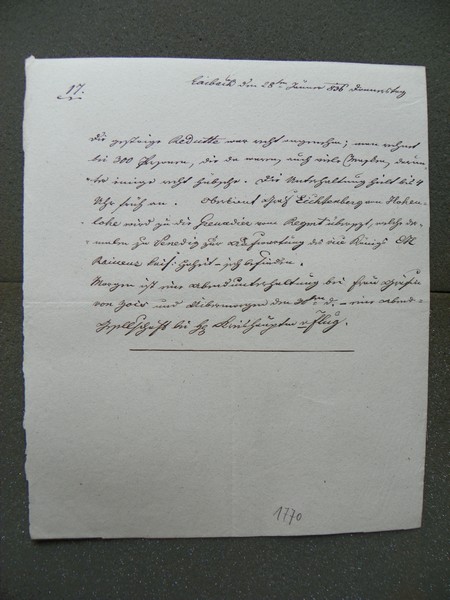 17.
Laibach den 28ten Jänner 836 Donnerstag
Die gestrige Redutte war recht angenehm; man rechnet
bei 300 Personen, die da waren, auch viele Masken, darun-
ter einige recht hübsche. Die Unterhaltung hielt bis 4
Uhr früh an. Oberleient Graf Lichtenberg von Hohen-
lohe wird zu die Grenadier vom Regmt übersezt, welche da-
malen zu Venedig zur Aufwartung des vice Königs
Rainerz kais: Hoheit sich befinden.
Morgen ist eine Abendunterhaltung bei Frau Gräfin
von Zois und Uibermorgen den 30ten d. eine Abend-
Gesellschaft bei H Kreishauptm v. Flug.
1770